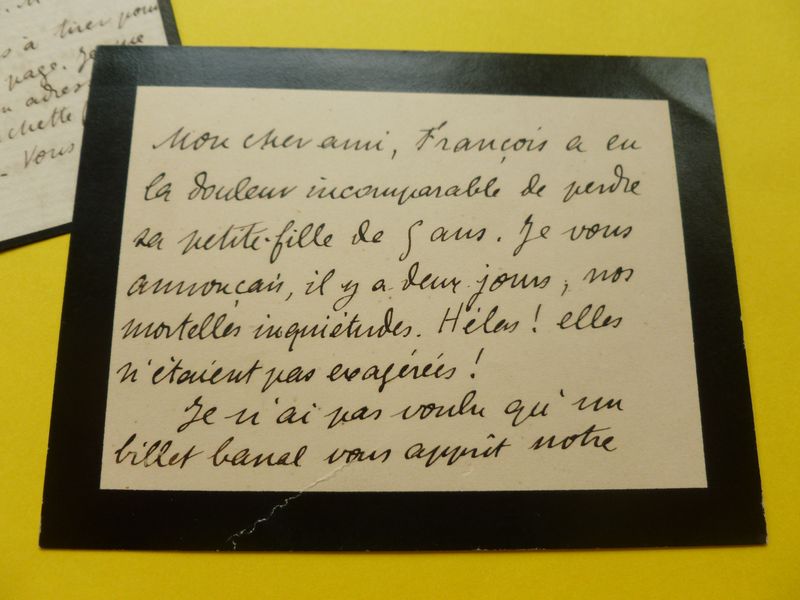 à tirer pour
page. Je me
adres
chette
Vous
Mon cher ami, François a eu
la douleur incomparable de perdre
sa petite-fille de 5 ans. Je vous
annonçais, il y a deux jours, nos
mortelles inquiétudes. Hélas! elles
n'étaient pas exagérées!
Je n'ai pas voulu qu'un
billet banal vous apprît notre